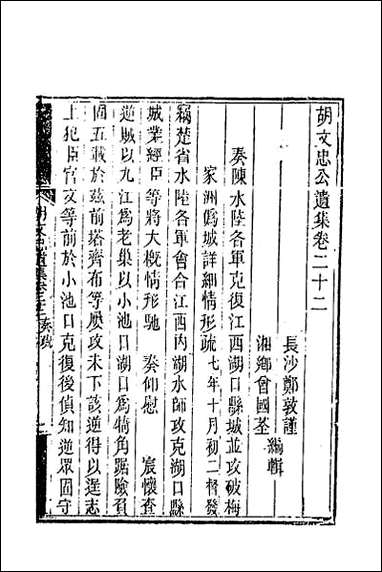 胡文忠公遺集卷二十二
長沙鄭敦謹
湘鄉曾國荃
編輯
奏陳水陸各軍克復江西湖口縣城並攻破梅
家洲僞城詳細情形疏
七年十月初二督發
竊楚省水陸各軍會合江西內湖水師攻克湖口縣
城業經臣等將大概情形馳　奏仰慰　宸懷查
逆賊以九江爲老巢以小池口湖口爲犄角踞險負
固五載於茲前塔齊布等屡攻未下該逆得以逞志
上犯臣官文等前於小池口克復後偵知逆眾固守
胡文忠公遺集卷二十二
奏疏
一